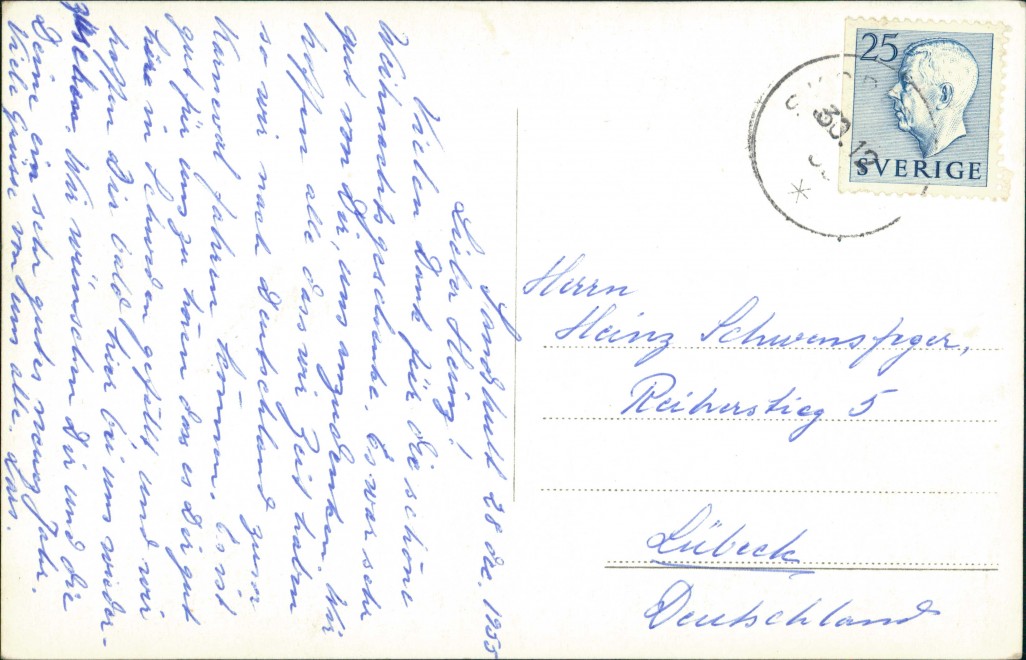 Sandhult 28 de. 1955
Lieber Heinz!
Vielen Dank für die schöne
Weihnachtsgeschenke. Es war sehr
gut von Dir, uns anzudenken. Wir
hoffen alle dass wir Zeit haben
so wir nach Deutschland zum
Karneval fahren können. Es ist
gut für uns zu hören das es Dir gut
höre in Schweden gefällt und wir
hoffen Dir bald hier bei uns wieder-
zusehen. Wir wünschen Dir und die
Deine ein sehr gutes neues Jahr.
Viele Grüsse von uns alle. Lars.
25
SVERIGE
30.12
Herrn
Heinz
Reiherstieg 5
Lübeck
Deutschland